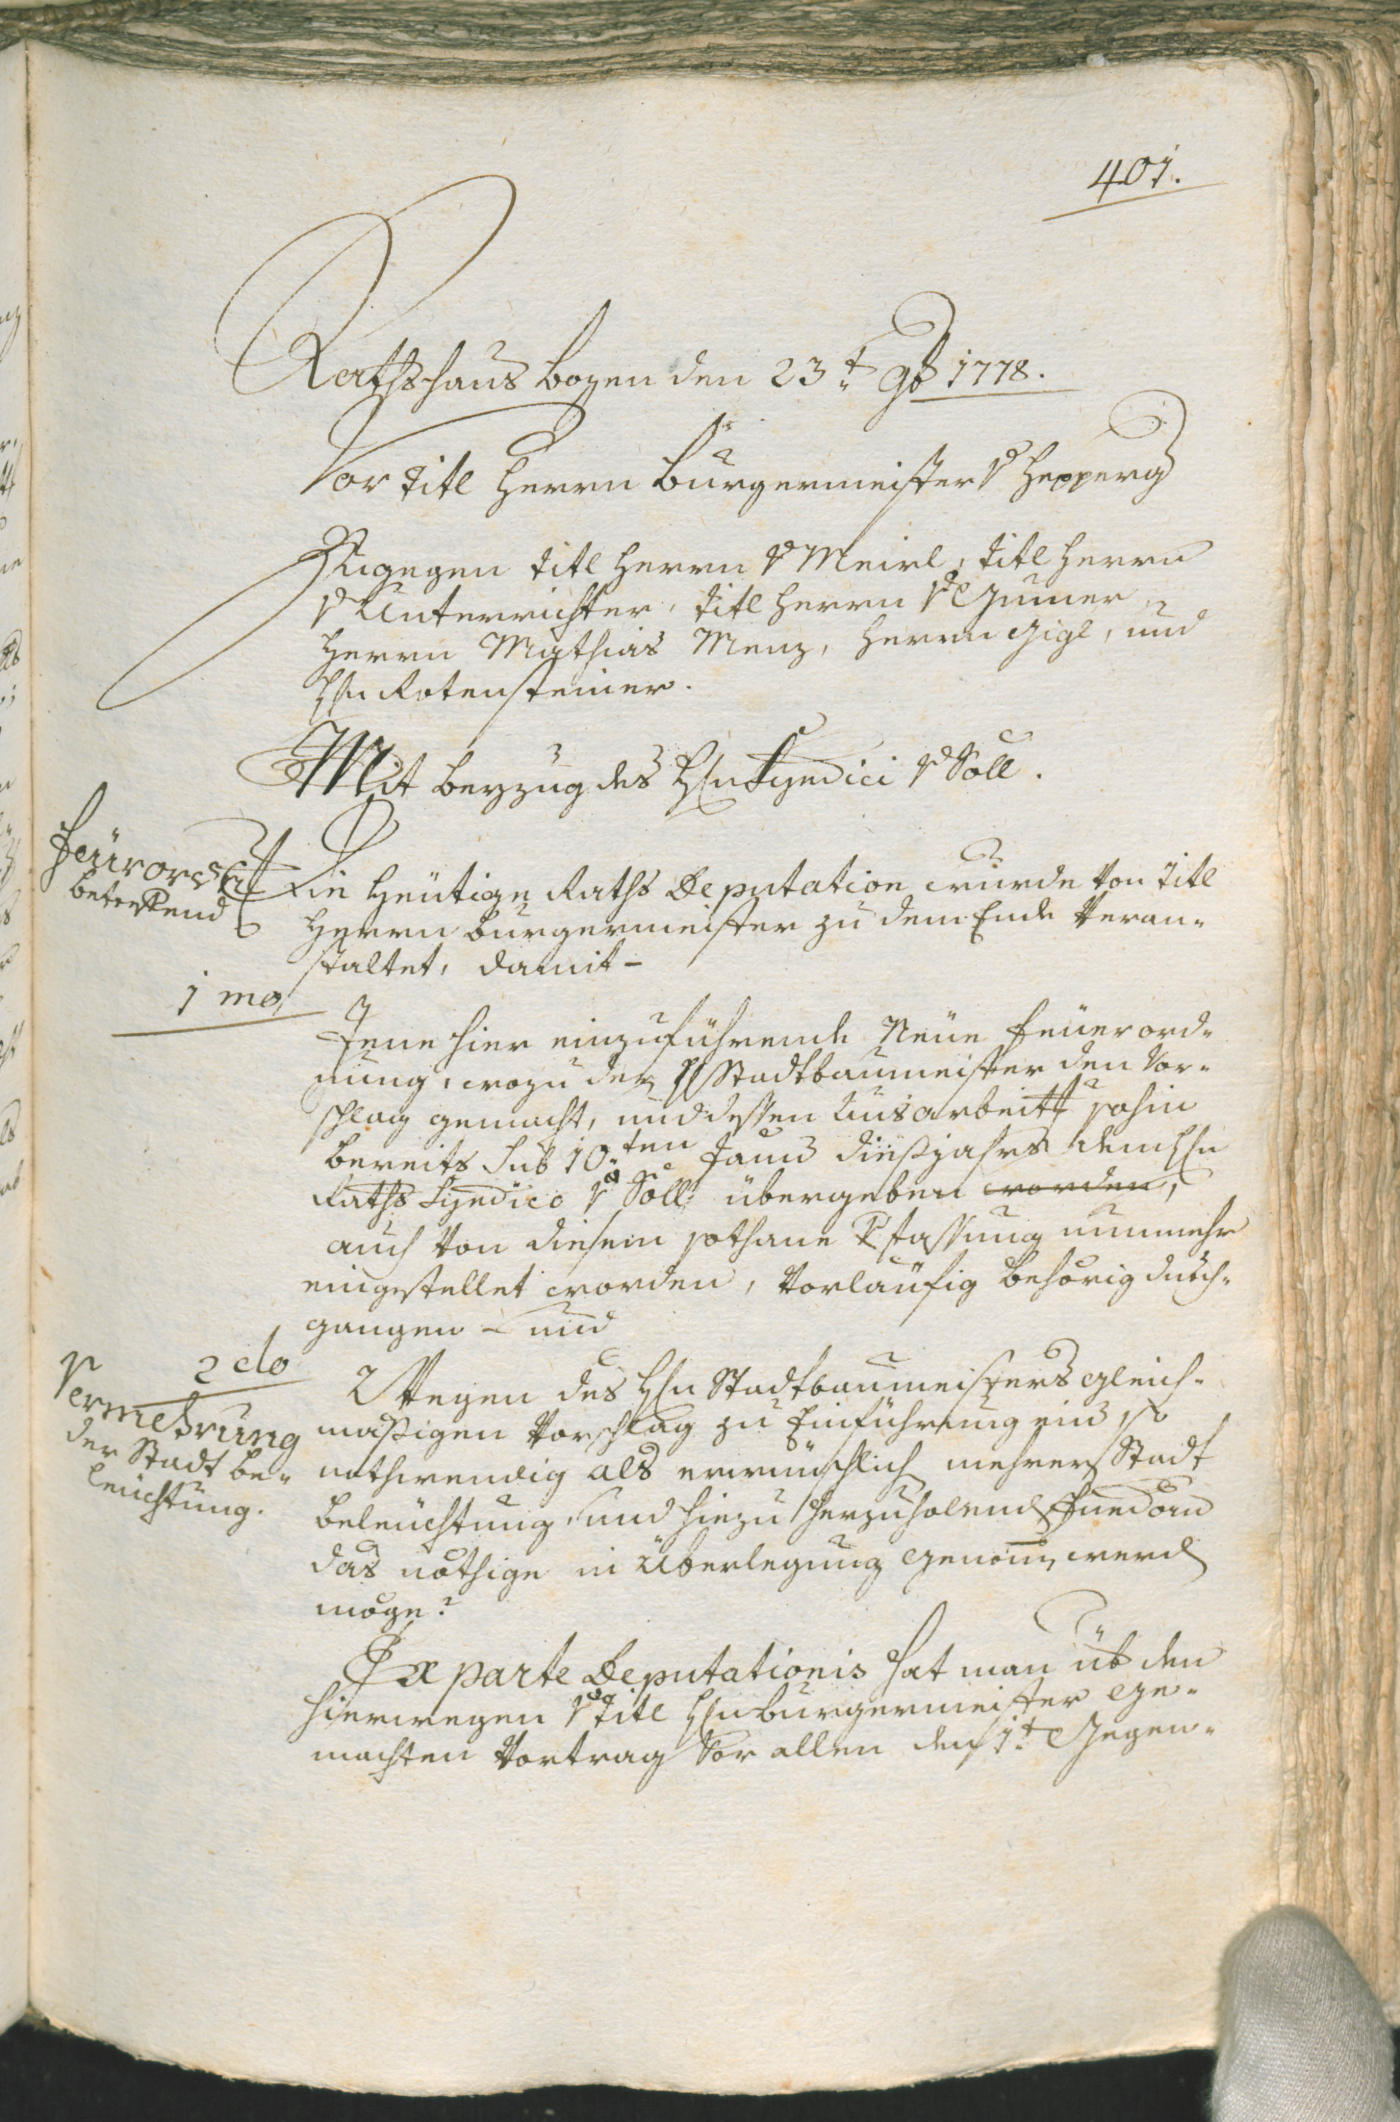 401.
Rathshaus bozen den 23t 9b 1778.
Vor titl Herrn Burgermeister v Hepperg
Zugegen titl Herrn v Meirl, titl Herrn
v Unterrichter, titl Herrn v Gumer
Herrn Mathias Menz, Herrn Gigl, und
H̃n Rotensteiner.
Mit beyzug des H̃n Syndici v Söll.
Feüirord
betreffend
Die Heütige Raths Deputation wurde von titl
Herrn burgermeister zu dem Ende veran-
staltet, damit -
1 mo
Jene hier einzuführende Neüe feüerord-
nung, wozu der H Stadtbaumeister den Vor-
schlag gemacht, und dessen Ausarbeitt sohin
bereits sub 10.ten dießjahrs dem H̃n
Raths Syndico v Söll übergeben worden,
auch von diesem sothane Vfassung nunmehr
eingestellet worden, vorlaüfig behörig durch-
gangen - und
2 do
Vermehrung
der Stadt be-
leüchtung.
Wegen des H̃n Stadtbaumeisters gleich-
mäßigen Vorschlag zu Einführung ein so
nothwendig als erwünschlich mehrer Stadt
beleüchtung, und hiezu herzuholend
das nöthige in Überlegung genom̅ werd
möge?
Ex parte Deputationis hat man üb den
hierwegen v titl H̃n burgermeister ge-
machten Vortrag vor allen den 1t gegen-